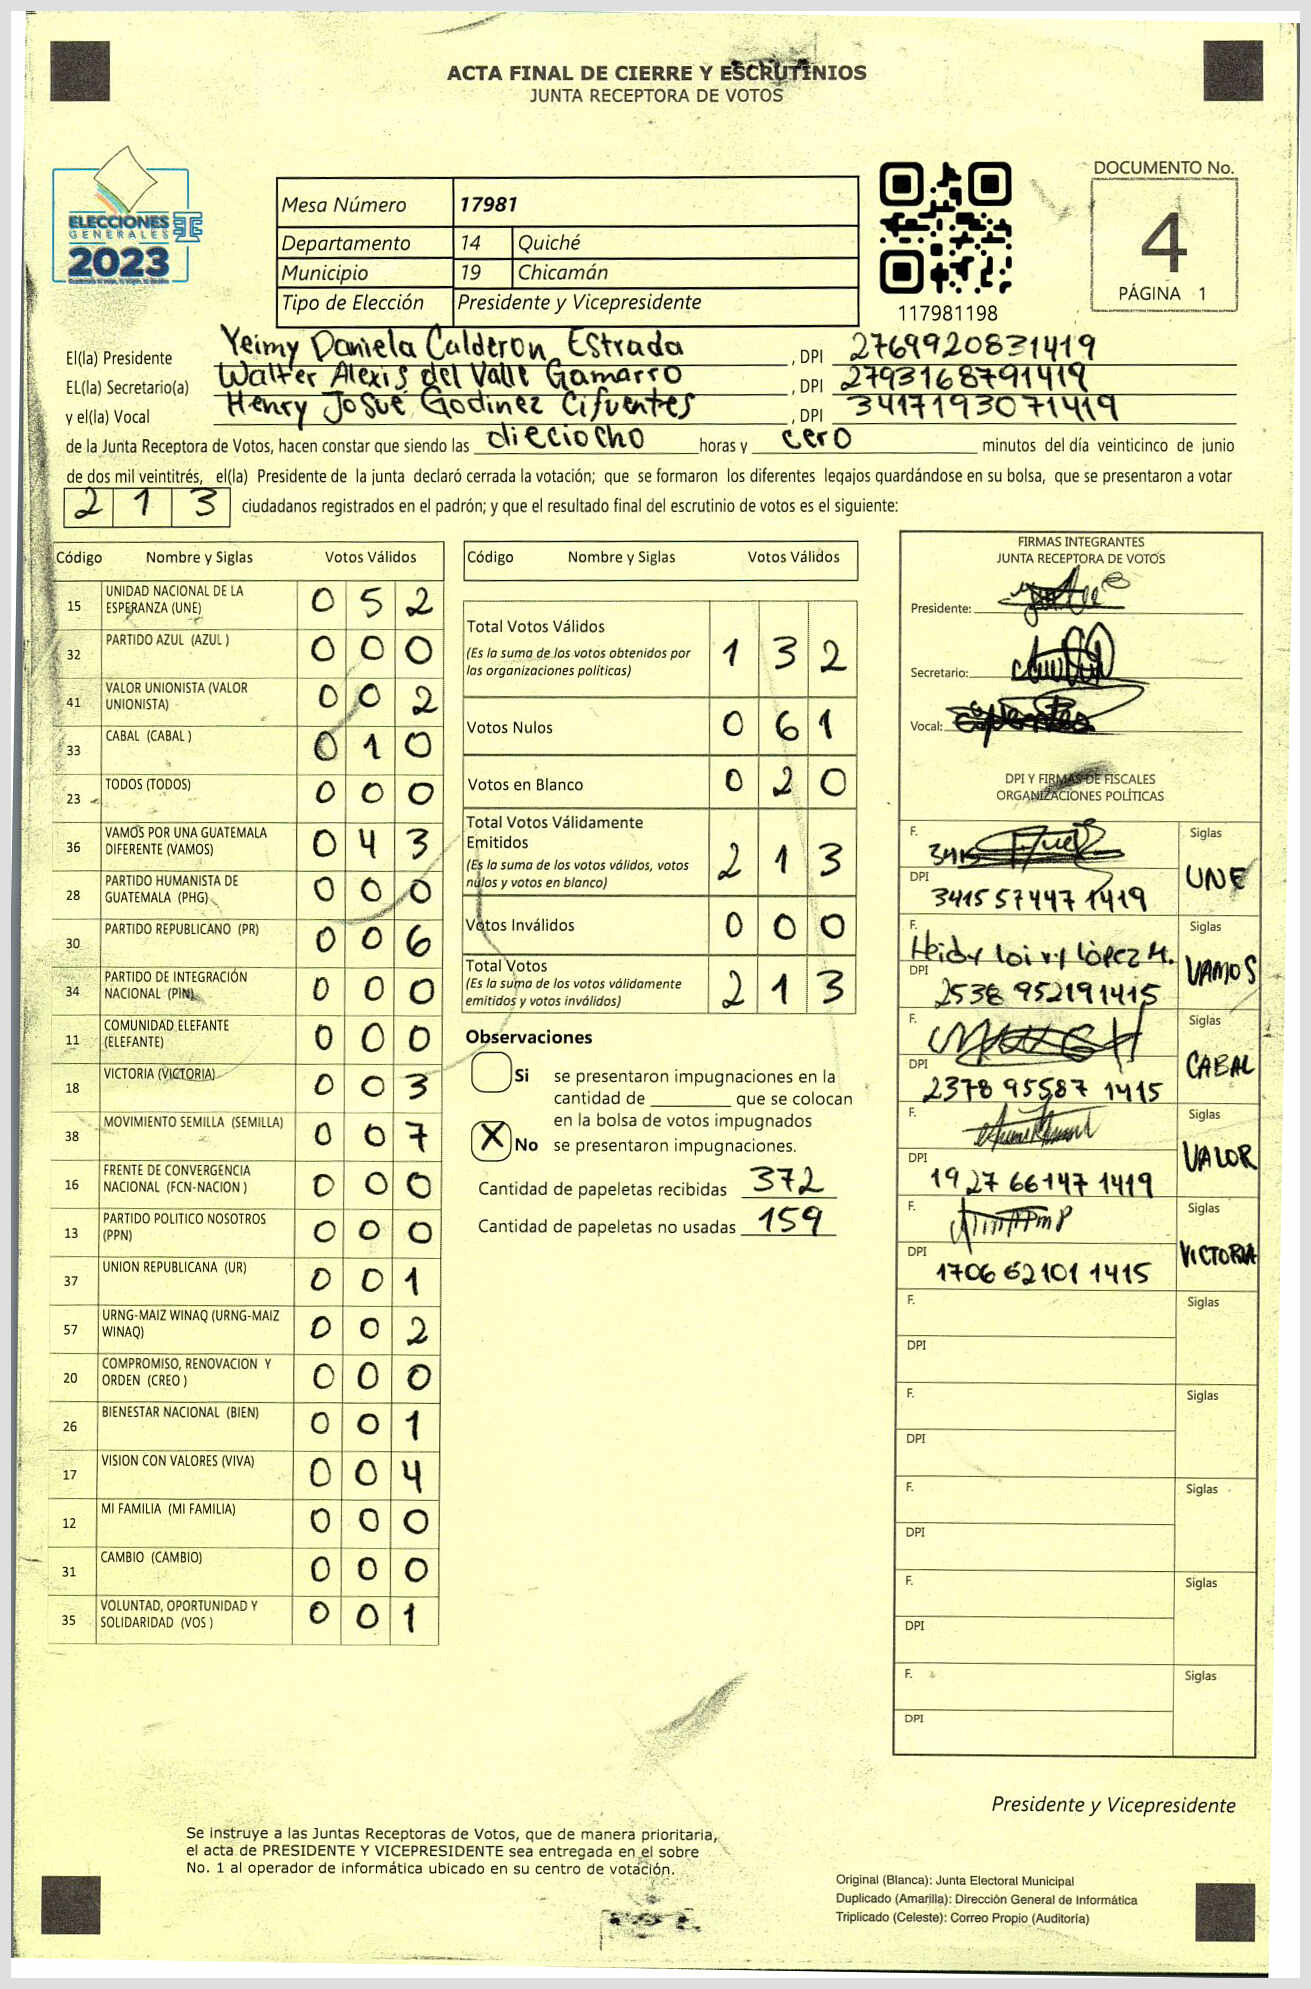 ACTA FINAL DE CIERRE Y ESCRUTINIOS
JUNTA RECEPTORA DE VOTOS
ELECCIONES
GENERALES
2023
Mesa Número 17981
Departamento 14 Quiché
Municipio 19 Chicamán
Tipo de Elección Presidente y Vicepresidente
117981198
DOCUMENTO No.
4
PÁGINA 1
El(la) Presidente Yeimy Daniela Calderon Estrada , DPI 2769920831419
EL(la) Secretario(a) Walter Alexis del Valle Gamarro , DPI 2793168791419
y el(la) Vocal Henry Josue Godinez Cifuentes , DPI 3417193071419
de la Junta Receptora de Votos, hacen constar que siendo las dieciocho horas y cero minutos del día veinticinco de junio
de dos mil veintitrés, el(la) Presidente de la junta declaró cerrada la votación; que se formaron los diferentes legajos guardándose en su bolsa, que se presentaron a votar
213 ciudadanos registrados en el padrón; y que el resultado final del escrutinio de votos es el siguiente:
Código Nombre y Siglas Votos Válidos
15 UNIDAD NACIONAL DE LA
ESPERANZA (UNE) 0 5 2
32 PARTIDO AZUL (AZUL ) 0 0 0
41 VALOR UNIONISTA (VALOR
UNIONISTA) 0 0 2
33 CABAL (CABAL ) 0 1 0
23 TODOS (TODOS) 0 0 0
36 VAMOS POR UNA GUATEMALA
DIFERENTE (VAMOS) 0 4 3
28 PARTIDO HUMANISTA DE
GUATEMALA (PHG) 0 0 0
30 PARTIDO REPUBLICANO (PR) 0 0 6
34 PARTIDO DE INTEGRACIÓN
NACIONAL (PIN) 0 0 0
11 COMUNIDAD ELEFANTE
(ELEFANTE) 0 0 0
18 VICTORIA (VICTORIA) 0 0 3
38 MOVIMIENTO SEMILLA (SEMILLA) 0 0 7
16 FRENTE DE CONVERGENCIA
NACIONAL (FCN-NACION ) 0 0 0
13 PARTIDO POLITICO NOSOTROS
(PPN) 0 0 0
37 UNION REPUBLICANA (UR) 0 0 1
57 URNG-MAIZ WINAQ (URNG-MAIZ
WINAQ) 0 0 2
20 COMPROMISO, RENOVACION Y
ORDEN (CREO ) 0 0 0
26 BIENESTAR NACIONAL (BIEN) 0 0 1
17 VISION CON VALORES (VIVA) 0 0 4
12 MI FAMILIA (MI FAMILIA) 0 0 0
31 CAMBIO (CAMBIO) 0 0 0
35 VOLUNTAD, OPORTUNIDAD Y
SOLIDARIDAD (VOS ) 0 0 1
Código Nombre y Siglas Votos Válidos
Total Votos Válidos
(Es la suma de los votos obtenidos por
las organizaciones políticas) 1 3 2
Votos Nulos 0 6 1
Votos en Blanco 0 2 0
Total Votos Válidamente
Emitidos
(Es la suma de los votos válidos, votos
nulos y votos en blanco) 2 1 3
Votos Inválidos 0 0 0
Total Votos
(Es la suma de los votos válidamente
emitidos y votos inválidos) 2 1 3
Observaciones
Si se presentaron impugnaciones en la
cantidad de ________ que se colocan
en la bolsa de votos impugnados
X No se presentaron impugnaciones.
Cantidad de papeletas recibidas 372
Cantidad de papeletas no usadas 159
FIRMAS INTEGRANTES
JUNTA RECEPTORA DE VOTOS
Presidente:
Secretario:
Vocal:
DPI Y FIRMAS DE FISCALES
ORGANIZACIONES POLÍTICAS
F. 3415 Siglas
DPI 3415 57447 1419 UNE
F. Heidy López M. Siglas
DPI 2538 95219 1415 VAMOS
F. Siglas
DPI 2378 95587 1415 CABAL
F. Siglas
DPI 1927 66147 1419 VALOR
F. Siglas
DPI 1706 62101 1415 VICTORIA
F. Siglas
DPI
F. Siglas
DPI
F. Siglas
DPI
F. Siglas
DPI
F. Siglas
DPI
Presidente y Vicepresidente
Se instruye a las Juntas Receptoras de Votos, que de manera prioritaria,
el acta de PRESIDENTE Y VICEPRESIDENTE sea entregada en el sobre
No. 1 al operador de informática ubicado en su centro de votación.
Original (Blanca): Junta Electoral Municipal
Duplicado (Amarilla): Dirección General de Informática
Triplicado (Celeste): Correo Propio (Auditoría)